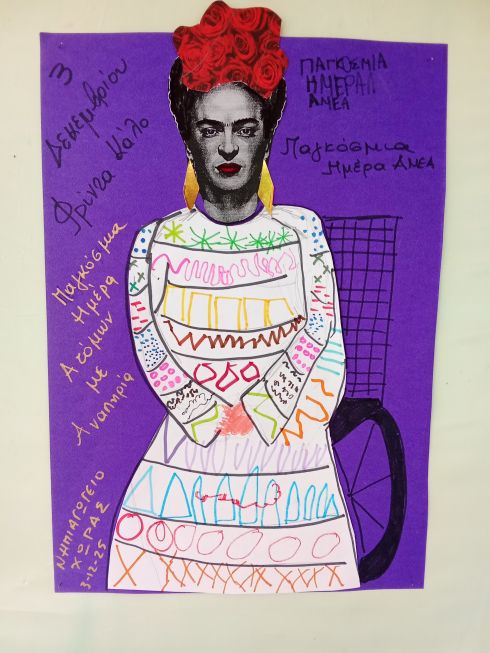 3
Δεκεμβρίου
Φρίντα Κάλο
ΠΑΓΚΟΣΜΙΑ
ΗΜΕΡΑΑ
ΑΜΕΑ
Παγκόσμια
Ημέρα ΑΜΕΑ
Παγκόσμια
Ημέρα
Ατόμων
με
Αναπηρία
ΝΗΠΙΑΓΩΓΕΙΟ
ΧΩΡΑΣ
3-12-25